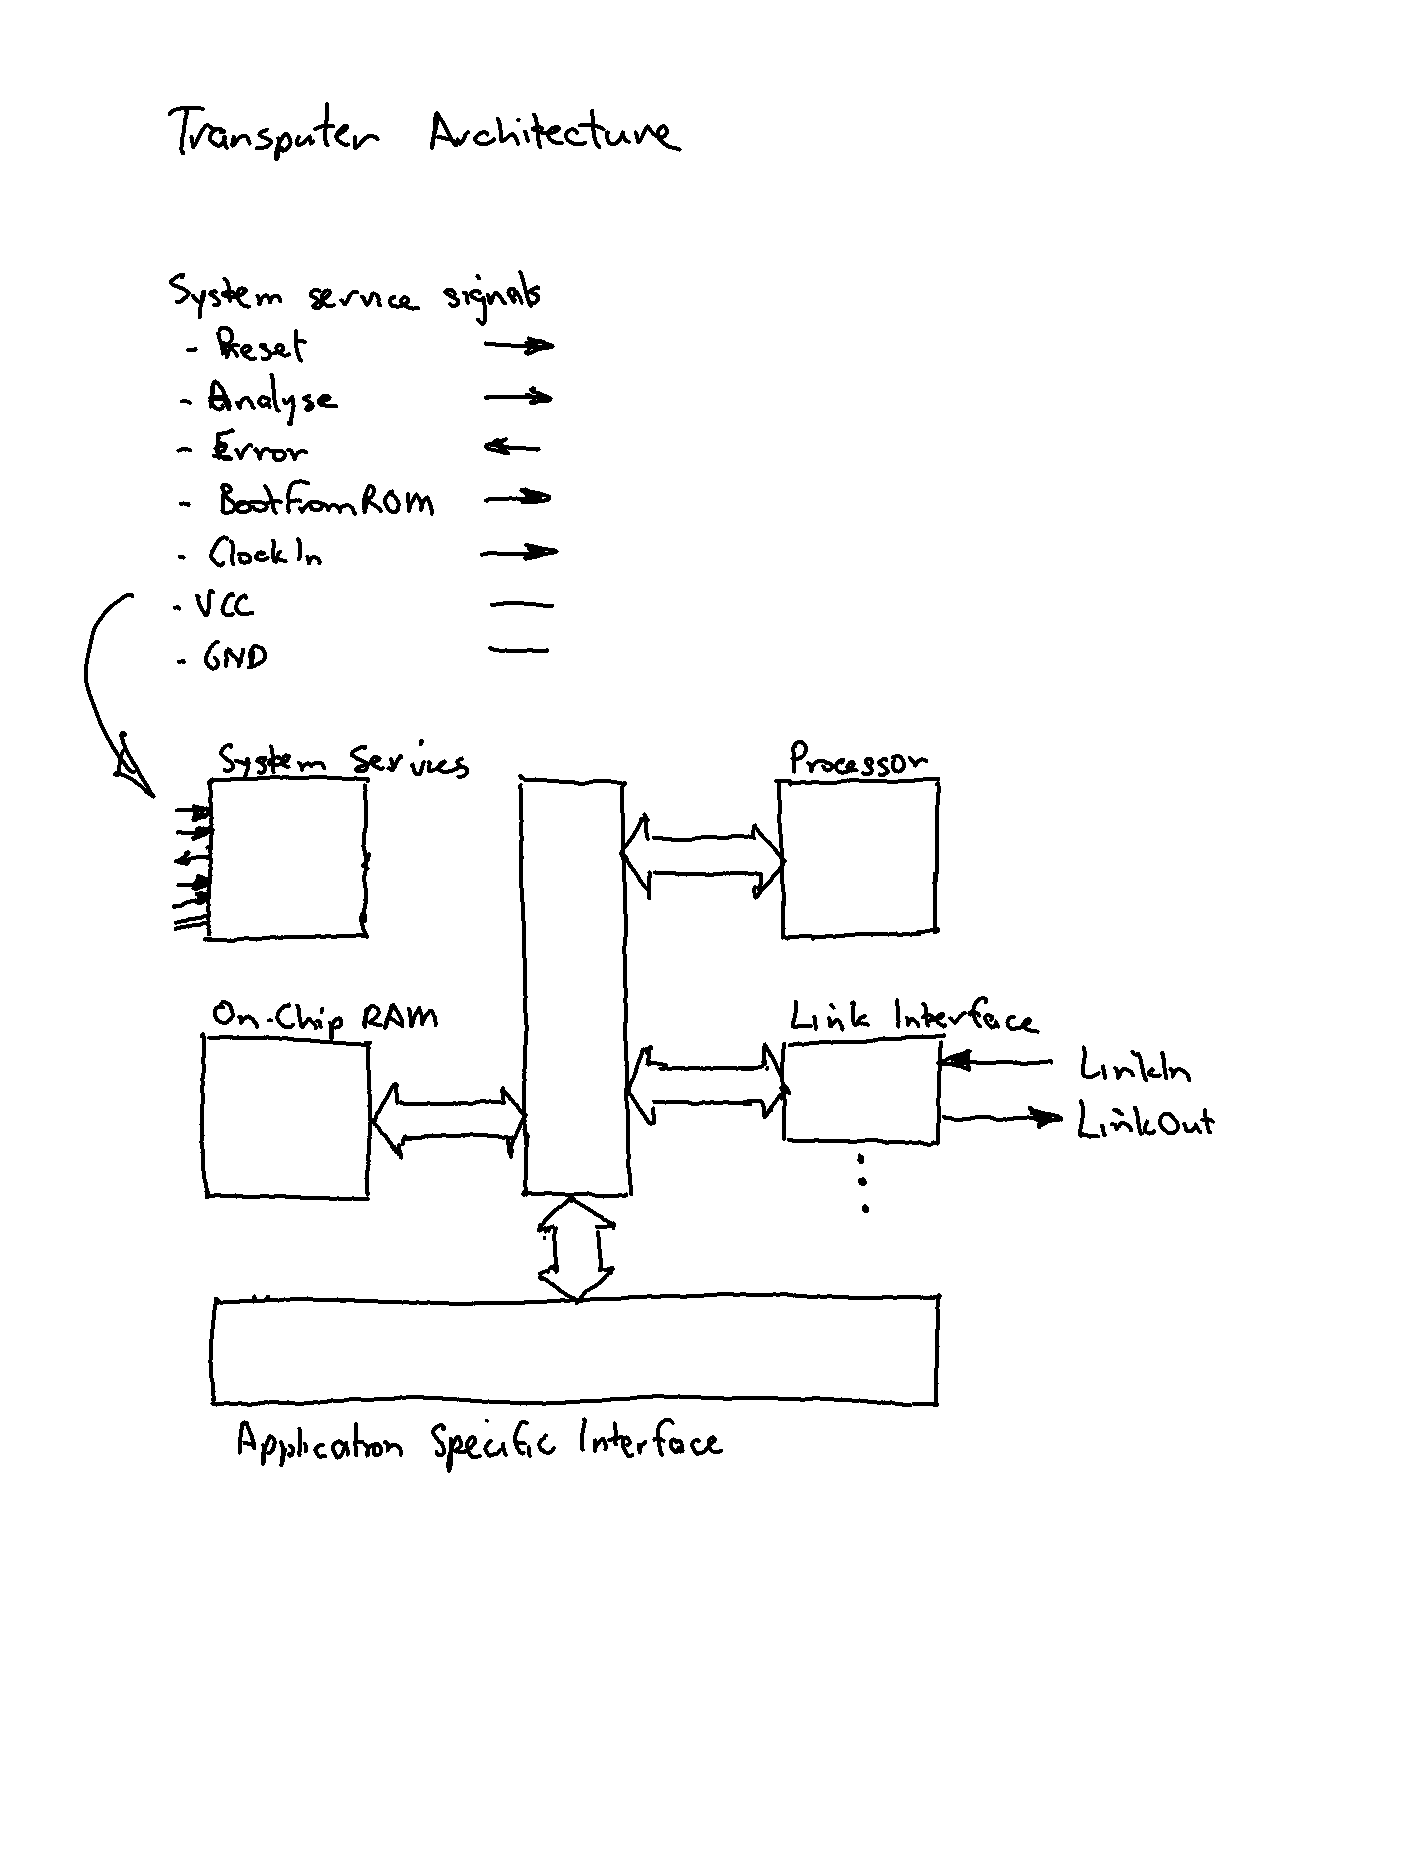 Transputer Architecture
System service signals
- Reset
- Analyse
- Error
- BootFromROM
- ClockIn
- VCC
- GND
System Servics
Processor
On-Chip RAM
Link Interface
LinkIn
LinkOut
Application Specific Interface